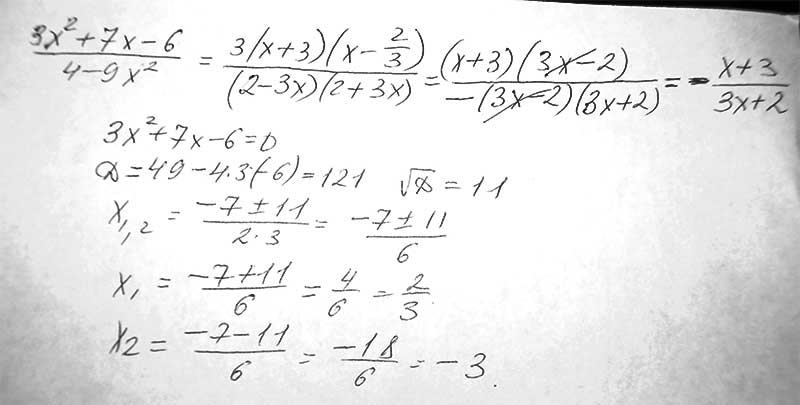 (3x²+7x-6)/(4-9x²) = 3(x+3)(x-2/3)/((2-3x)(2+3x)) = (x+3)(3x-2)/(-(3x-2)(3x+2)) = -(x+3)/(3x+2)
3x²+7x-6=0
D=49-4·3·(-6)=121 √D=11
x₁,₂ = (-7±11)/(2·3) = (-7±11)/6
x₁ = (-7+11)/6 = 4/6 = 2/3
x₂ = (-7-11)/6 = -18/6 = -3.